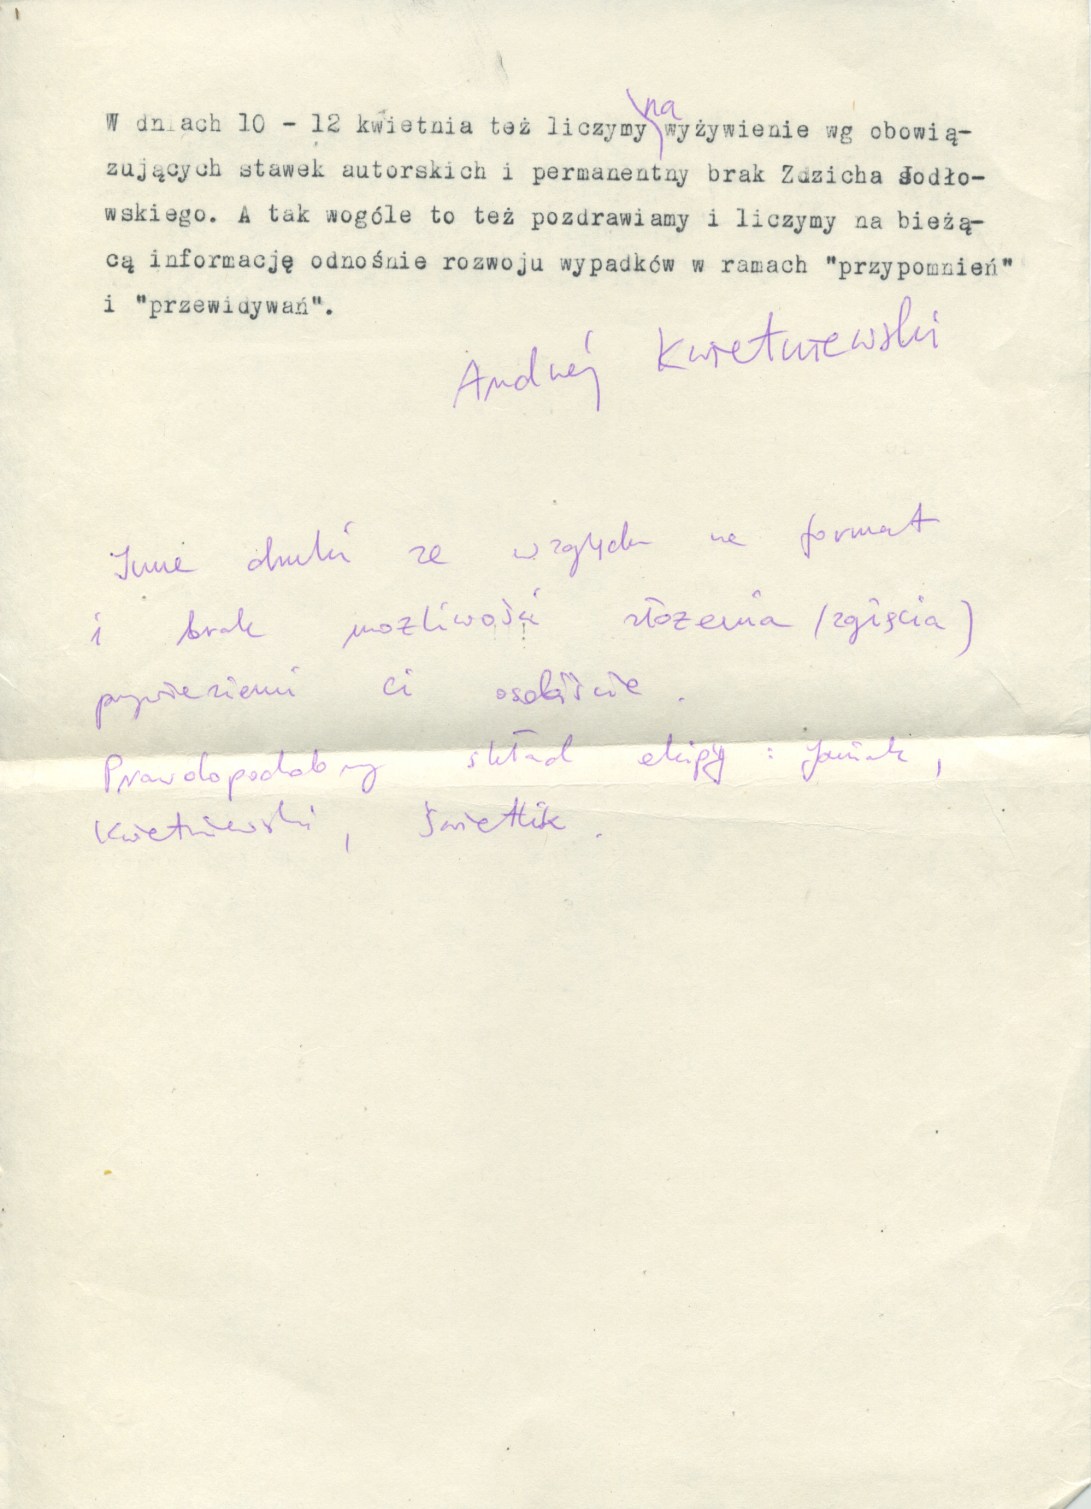 W dniach 10 - 12 kwietnia też liczymy na wyżywienie wg obowią-
zujących stawek autorskich i permanentny brak Zdzicha Jodło-
wskiego. A tak wogóle to też pozdrawiamy i liczymy na bieżą-
cą informację odnośnie rozwoju wypadków w ramach "przypomnień"
i "przewidywań".
Andrzej Kwietniewski
Inne druki ze względu na format
i brak możliwości złożenia /zgięcia)
przywieziemy ci osobiście.
Prawdopodobny skład ekipy: Janiak,
Kwietniewski, Świetlik.